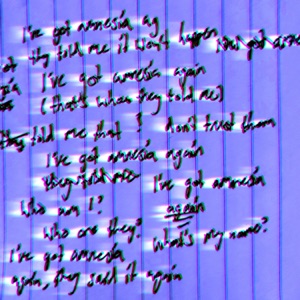 I've got amnesia ag
they told me it won't happen
I've got amnesia again
(that's what they told me)
they told me that I don't trust them
I've got amnesia again
they told me I've got amnesia
again
Who am I?
Who are they? What's my name?
I've got amnesia
again, they said it again